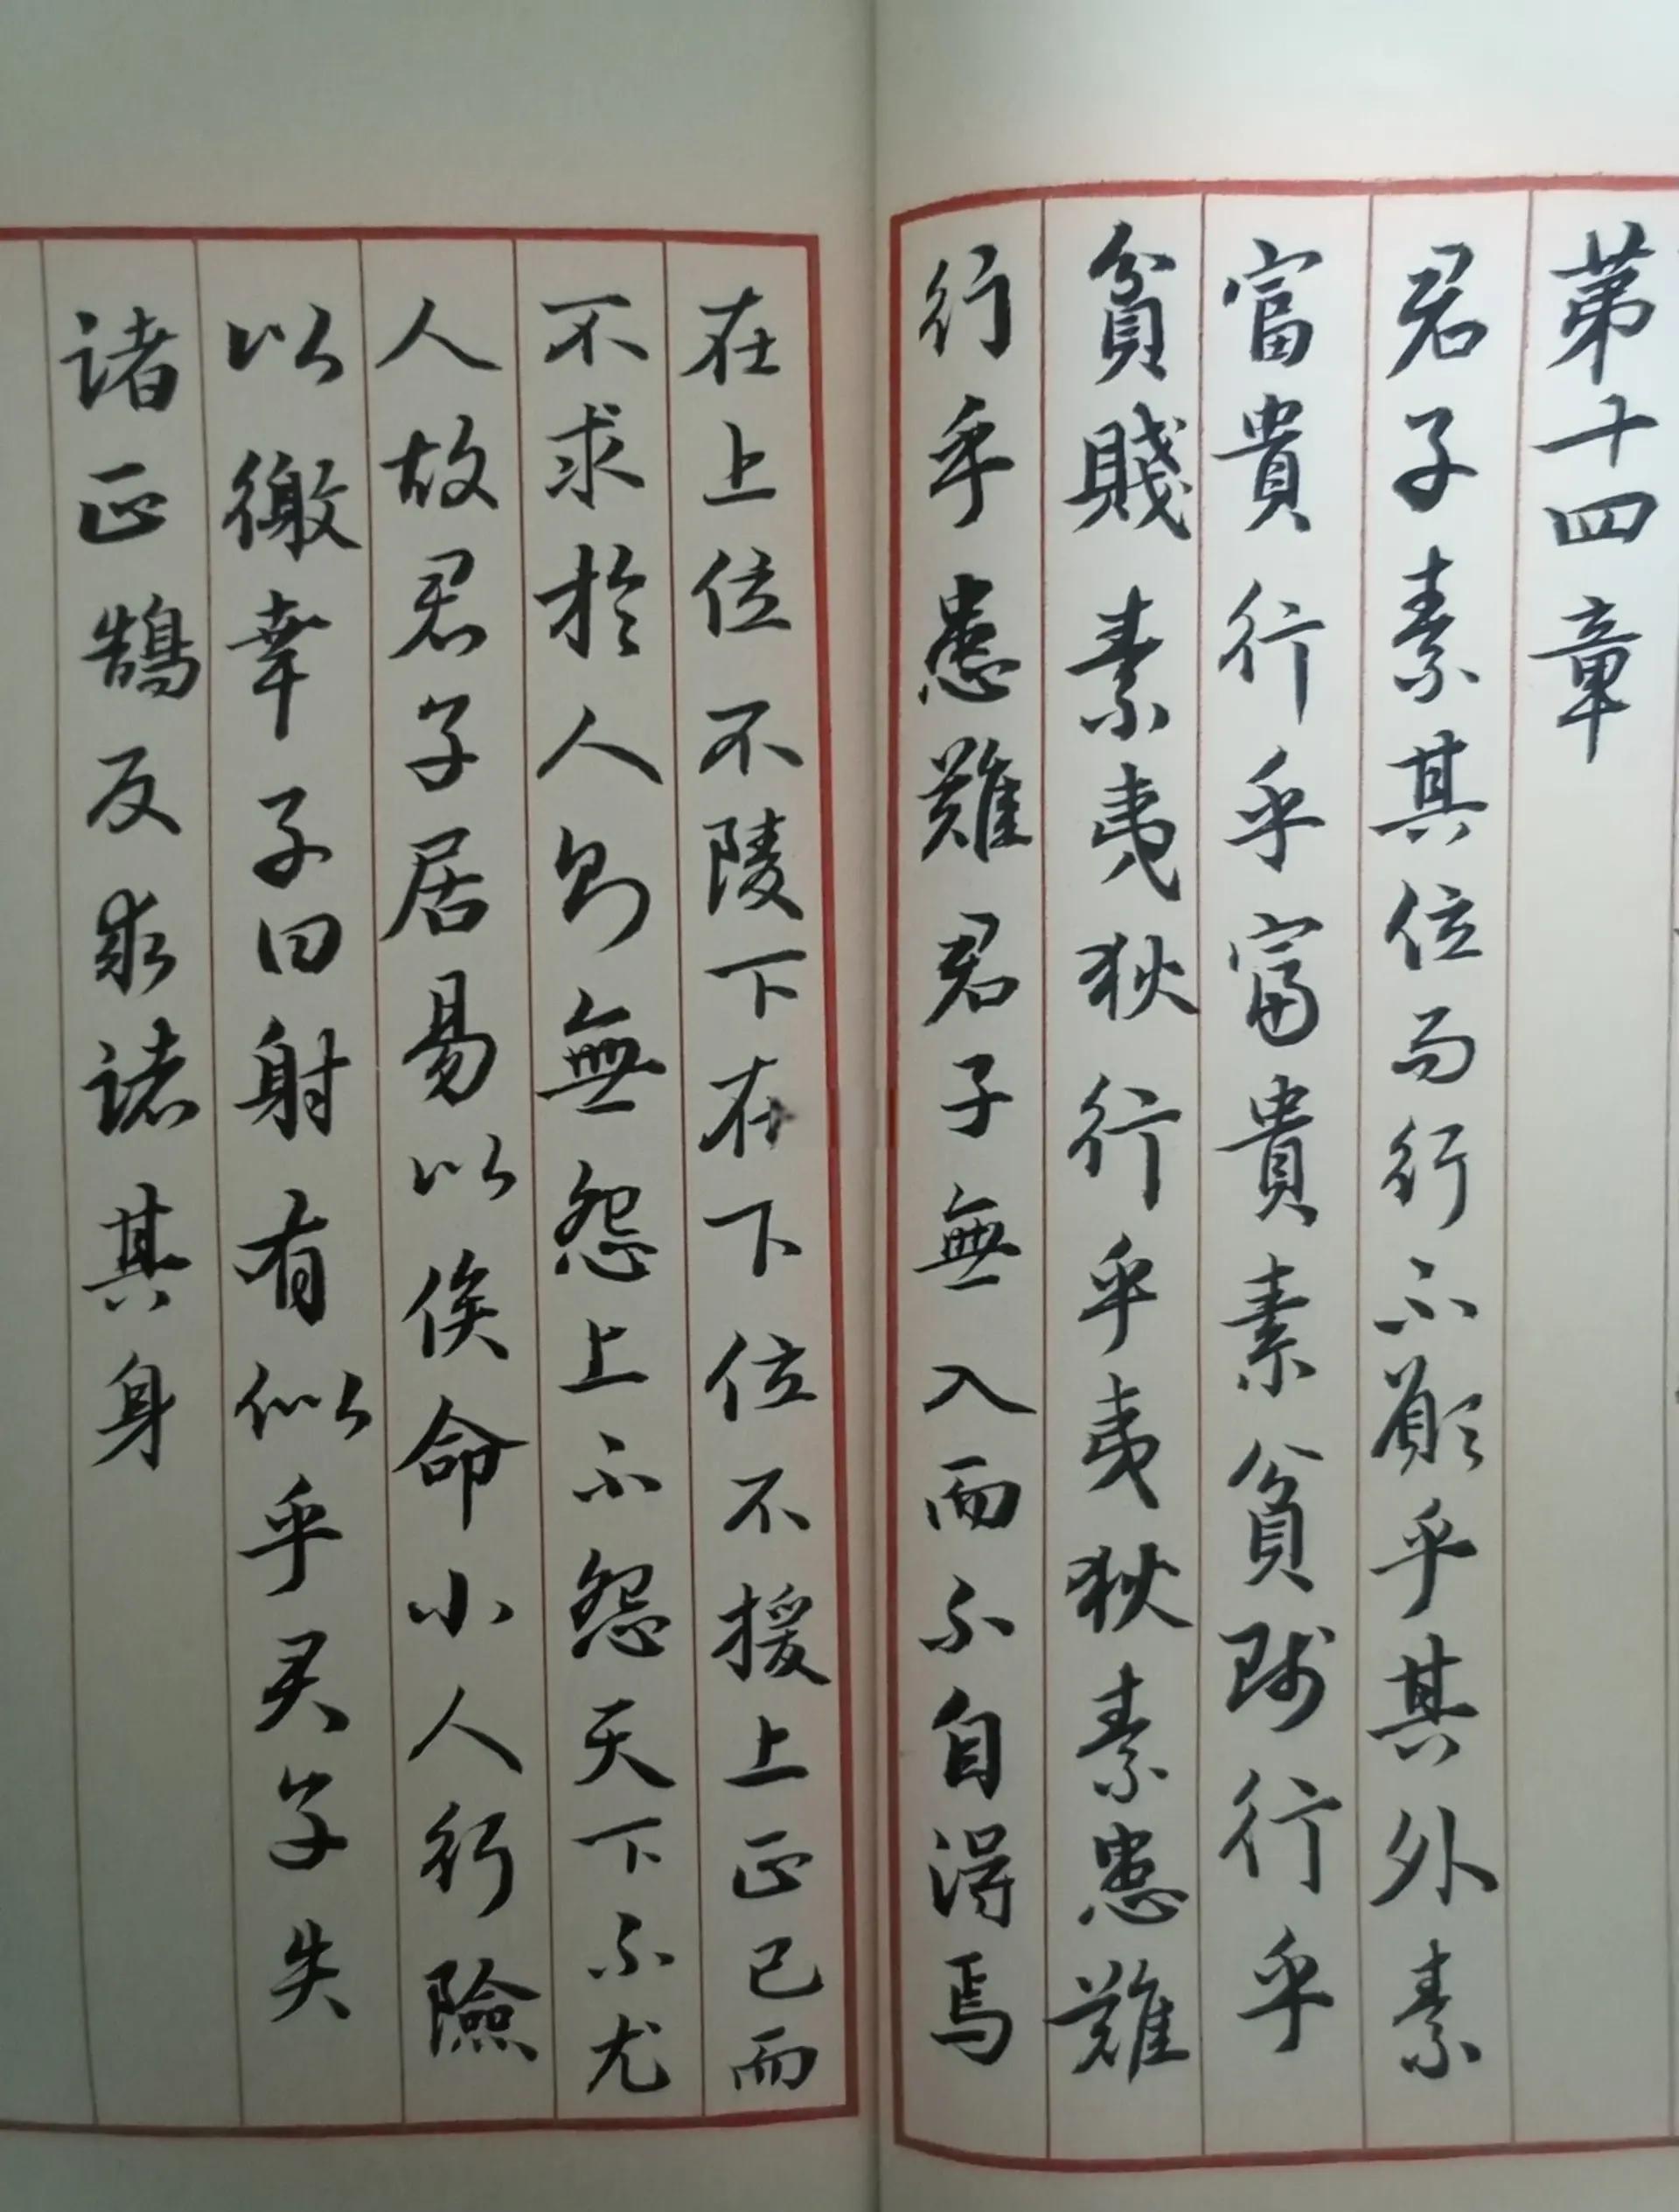 第十四章
君子素其位而行不願乎其外素
富貴行乎富貴素貧賤行乎
貧賤素夷狄行乎夷狄素患難
行乎患難君子無入而不自得焉
在上位不陵下在下位不援上正己而
不求於人則無怨上不怨天下不尤
人故君子居易以俟命小人行險
以徼幸子曰射有似乎君子失
諸正鵠反求諸其身